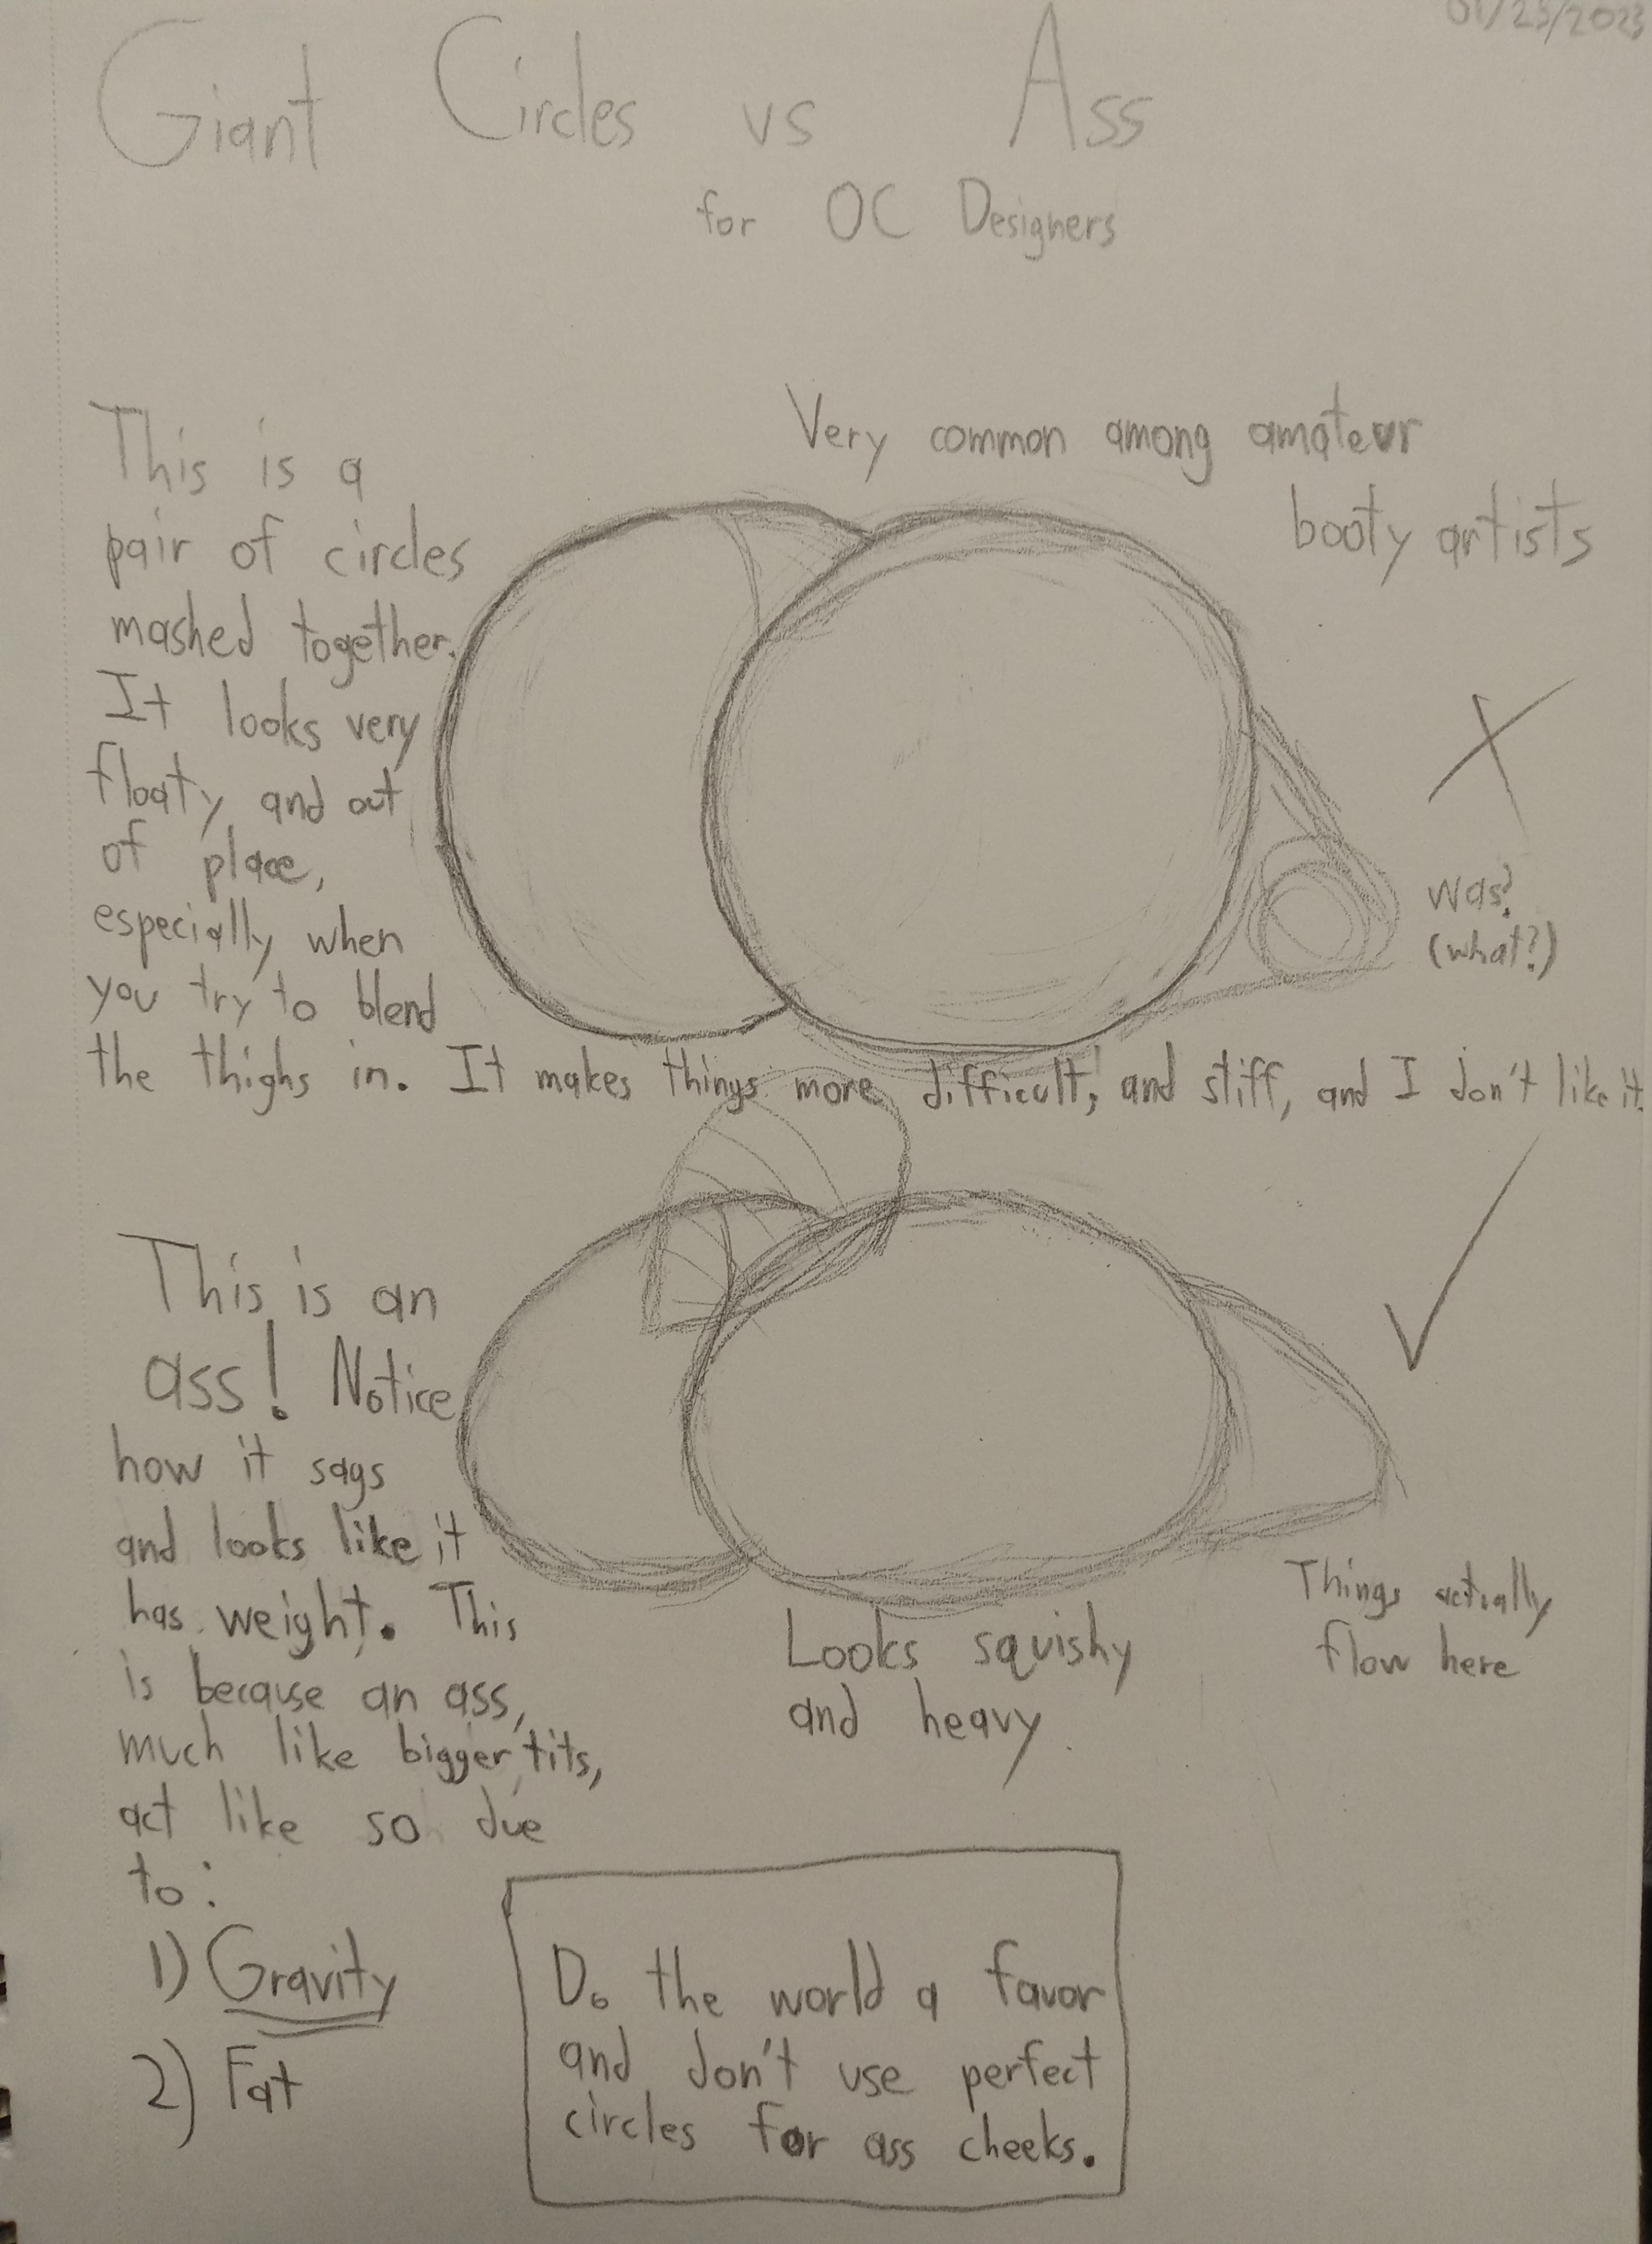 01/23/2023
Giant Circles vs Ass
for OC Designers
Very common among amateur
booty artists
This is a
pair of circles
mashed together.
It looks very
floaty, and out
of place,
especially when
you try to blend
the thighs in. It makes things more difficult, and stiff, and I don't like it.
was?
(what?)
This is an
ass! Notice
how it sags
and looks like it
has weight. This
is because an ass,
much like bigger tits,
act like so due
to:
1) Gravity
2) Fat
Looks squishy
and heavy.
Things actually
flow here
Do the world a favor
and don't use perfect
circles for ass cheeks.